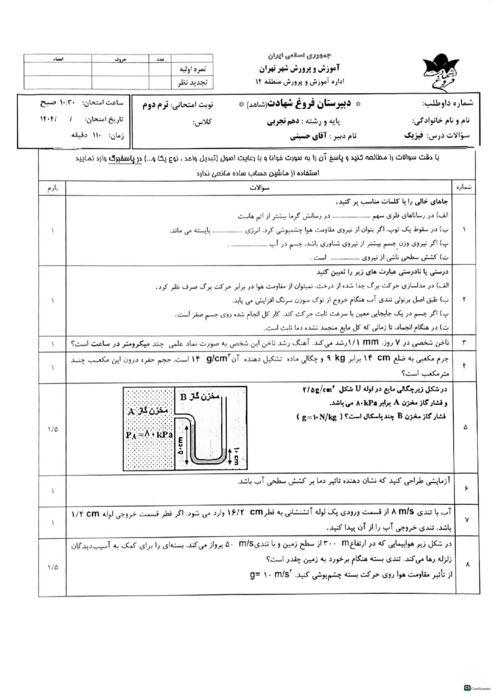 جمهوری اسلامی ایران
آموزش و پرورش شهر تهران
اداره آموزش و پرورش منطقه ۱۴
عدد
حروف
امضاء
نمره اولیه
تجدید نظر
شماره داوطلب:
نام و نام خانوادگی:
سؤالات درس: فیزیک
* دبیرستان فروغ شهادت(شاهد) *
پایه و رشته : دهم تجربی
نام دبیر : آقای حسینی
نوبت امتحانی: ترم دوم
کلاس:
ساعت امتحان: ۱۰:۳۰ صبح
تاریخ امتحان: / / ۱۴۰۴
زمان: ۱۱۰ دقیقه
با دقت سوالات را مطالعه کنید و پاسخ آن را به صورت خوانا و با رعایت اصول (تبدیل واحد ، نوع یکا و...) در پاسخبرگ وارد نمایید
استفاده از ماشین حساب ساده مانعی ندارد
شماره
سوالات
بارم
۱
جاهای خالی را با کلمات مناسب پر کنید.
الف) در رساناهای فلزی سهم .................. در رسانش گرما بیشتر از اتم هاست
ب) در سقوط یک توپ، اگر بتوان از نیروی مقاومت هوا چشمپوشی کرد، انرژی .............. پایسته می ماند.
پ) اگر نیروی وزن جسم بیشتر از نیروی شناوری باشد، جسم در آب .................. .
ت) کشش سطحی ناشی از نیروی .............. است .
۱
۲
درستی یا نادرستی عبارت های زیر را تعیین کنید
الف) در مدلسازی حرکت برگ جدا شده از درخت، نمیتوان از مقاومت هوا در برابر حرکت برگ صرف نظر کرد.
ب) طبق اصل برنولی تندی آب هنگام خروج از نوک سوزن سرنگ افزایش می یابد.
پ) اگر جسم در یک جابجایی معین با سرعت ثابت حرکت کند، کار کل انجام شده روی جسم صفر است.
ت) در هنگام انجماد، تا زمانی که کل مایع منجمد نشده دما ثابت است.
۱
۳
ناخن شخصی در ۷ روز، ۱/۱ mm رشد می‌کند. آهنگ رشد ناخن این شخص به صورت نماد علمی چند میکرومتر در ساعت است؟
۱
۴
جرم مکعبی به ضلع ۱۴ cm برابر ۹ kg و چگالی ماده تشکیل دهنده آن ۱۴ g/cm³ است. حجم حفره درون این مکعب چند سانتی
مترمکعب است؟
۱
۵
در شکل زیر چگالی مایع در لوله U شکل ۲/۵ g/cm³
و فشار گاز مخزن A برابر ۸۰ kPa می باشد.
فشار گاز مخزن B چند پاسکال است؟ ( g=۱۰ N/kg )
مخزن گاز B
مخزن گاز A
P_A=۸۰ kPa
۵۰ cm
۱۰ cm
۱/۵
۶
آزمایشی طراحی کنید که نشان دهنده تاثیر دما بر کشش سطحی آب باشد.
۱
۷
آب با تندی ۸ m/s از قسمت ورودی یک لوله آتشنشانی به قطر ۱۶/۲ cm وارد می شود. اگر قطر قسمت خروجی لوله ۱/۲ cm
باشد، تندی خروجی آب را از آن پیدا کنید.
۱
۸
در شکل زیر هواپیمایی که در ارتفاع ۳۰۰ m از سطح زمین و با تندی ۵۰ m/s پرواز می‌کند، بسته‌ای را برای کمک به آسیب‌دیدگان
زلزله رها می‌کند. تندی بسته هنگام برخورد به زمین چقدر است؟
از تأثیر مقاومت هوا روی حرکت بسته چشم‌پوشی کنید. g= ۱۰ m/s²
۱/۵
CamScanner